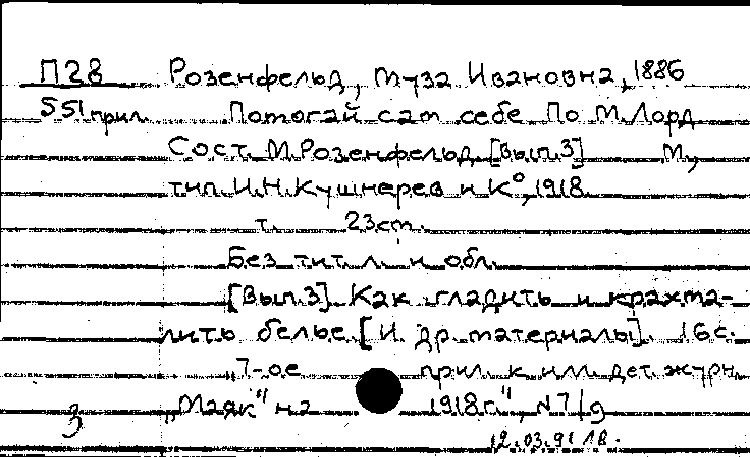 П28 Розенфельд, Муза Ивановна, 1886
551 прил. Помогай сам себе По М. Лорд
Сост. М. Розенфельд. [Вып. 3] М.,
тип. И.Н. Кушнерев и К°, 1918.
т. 23 см.
Без тит. л. и обл.
[Вып. 3]. Как гладить и крахма-
лить белье. [И др. материалы]. 16 с.
„7-ое прил. к илл. дет. журн.
3 „Маяк" на 1918 г.", №7/9
12.03.91